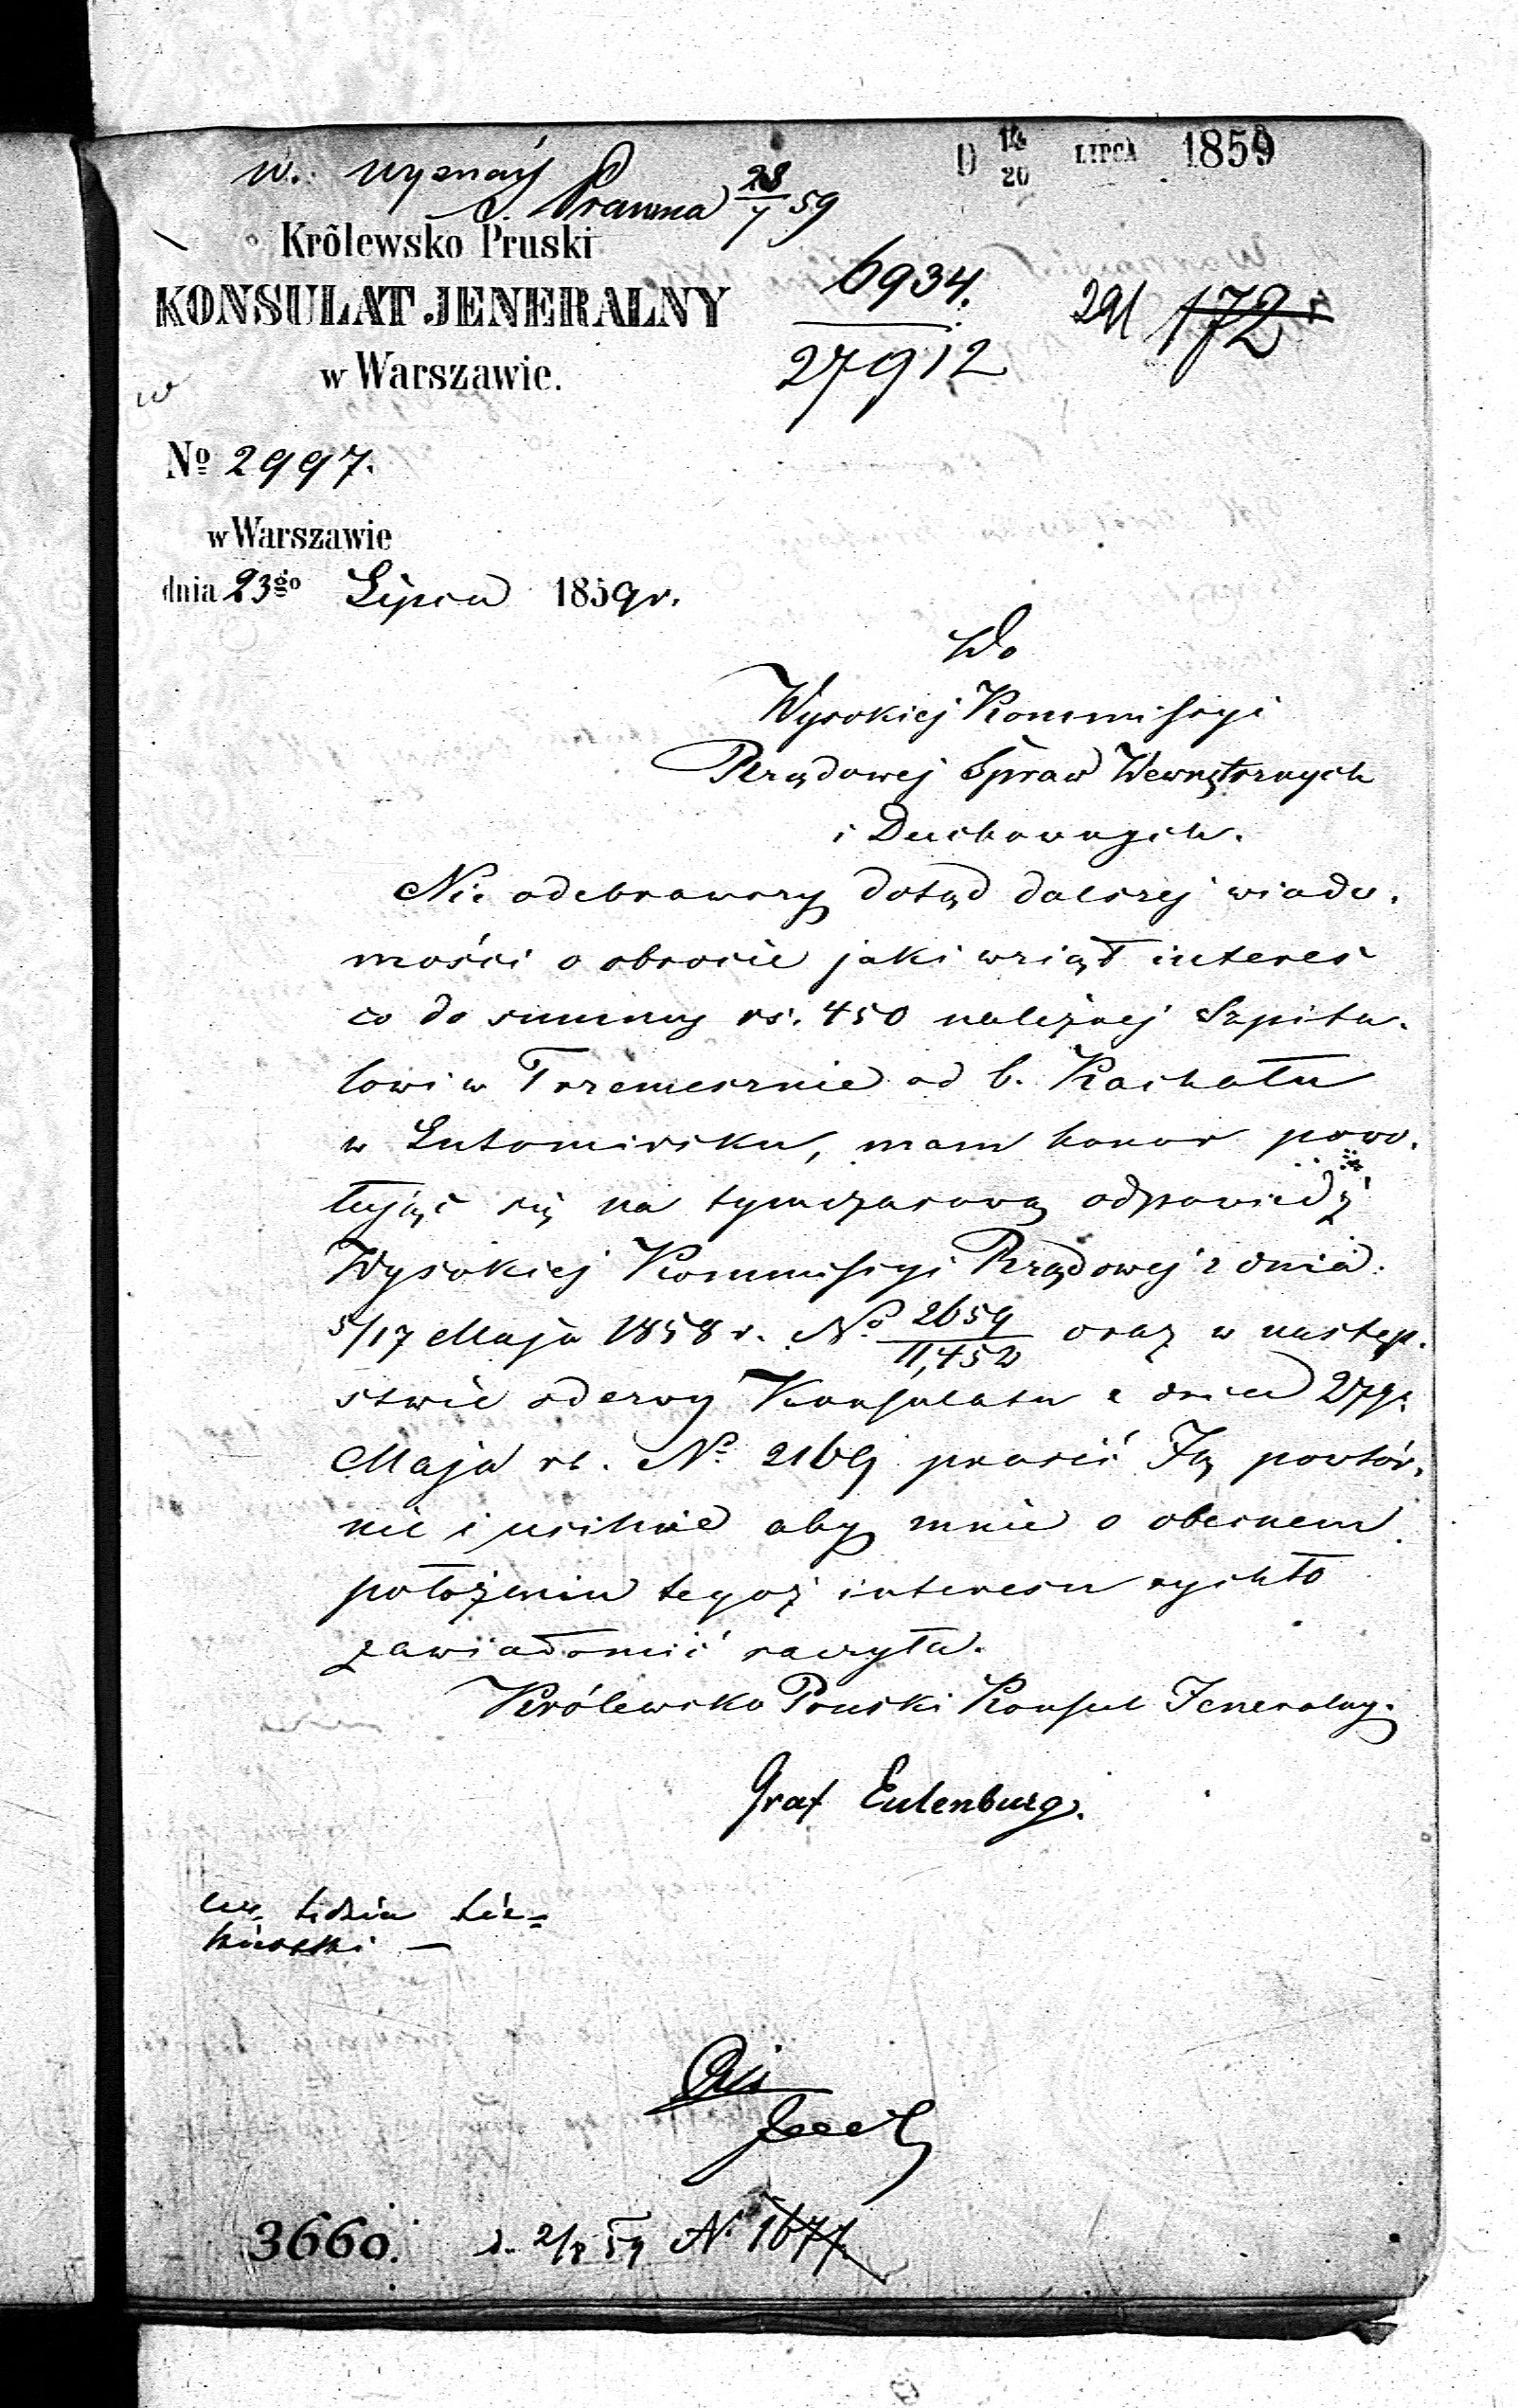 D 14/20 LIPCA 1859
W. Wyznań
S. Prawna 28/7 59
Królewsko Pruski
KONSULAT JENERALNY
w Warszawie.
6934.
27912
291 172
w
No 2997.
w Warszawie
dnia 23go Lipca 1859 r.
Do
Wysokiej Kommissyi
Rządowej Spraw Wewnętrznych
i Duchownych.
Nie odebrawszy dotąd dalszej wiado-
mości o obrocie jaki wziął interes
co do summy rs. 450 należnej Szpita-
lowi w Trzemesznie od b. Kachału
w Lutomirsku, mam honor powo-
łując się na tymczasową odpowiedź
Wysokiej Kommissyi Rządowej z dnia
5/17 Maja 1858 r. No 2659/11,452 oraz w następ-
stwie odezwy Konsulatu z dnia 27go
Maja rb. No 2169 prosić Ją powtór-
nie i usilnie aby mnie o obecnem
położeniu tegoż interesu rychło
zawiadomić raczyła.
Królewsko Pruski Konsul Jeneralny.
Graf Eulenburg.
3660. d. 2/8 59 N. 1677